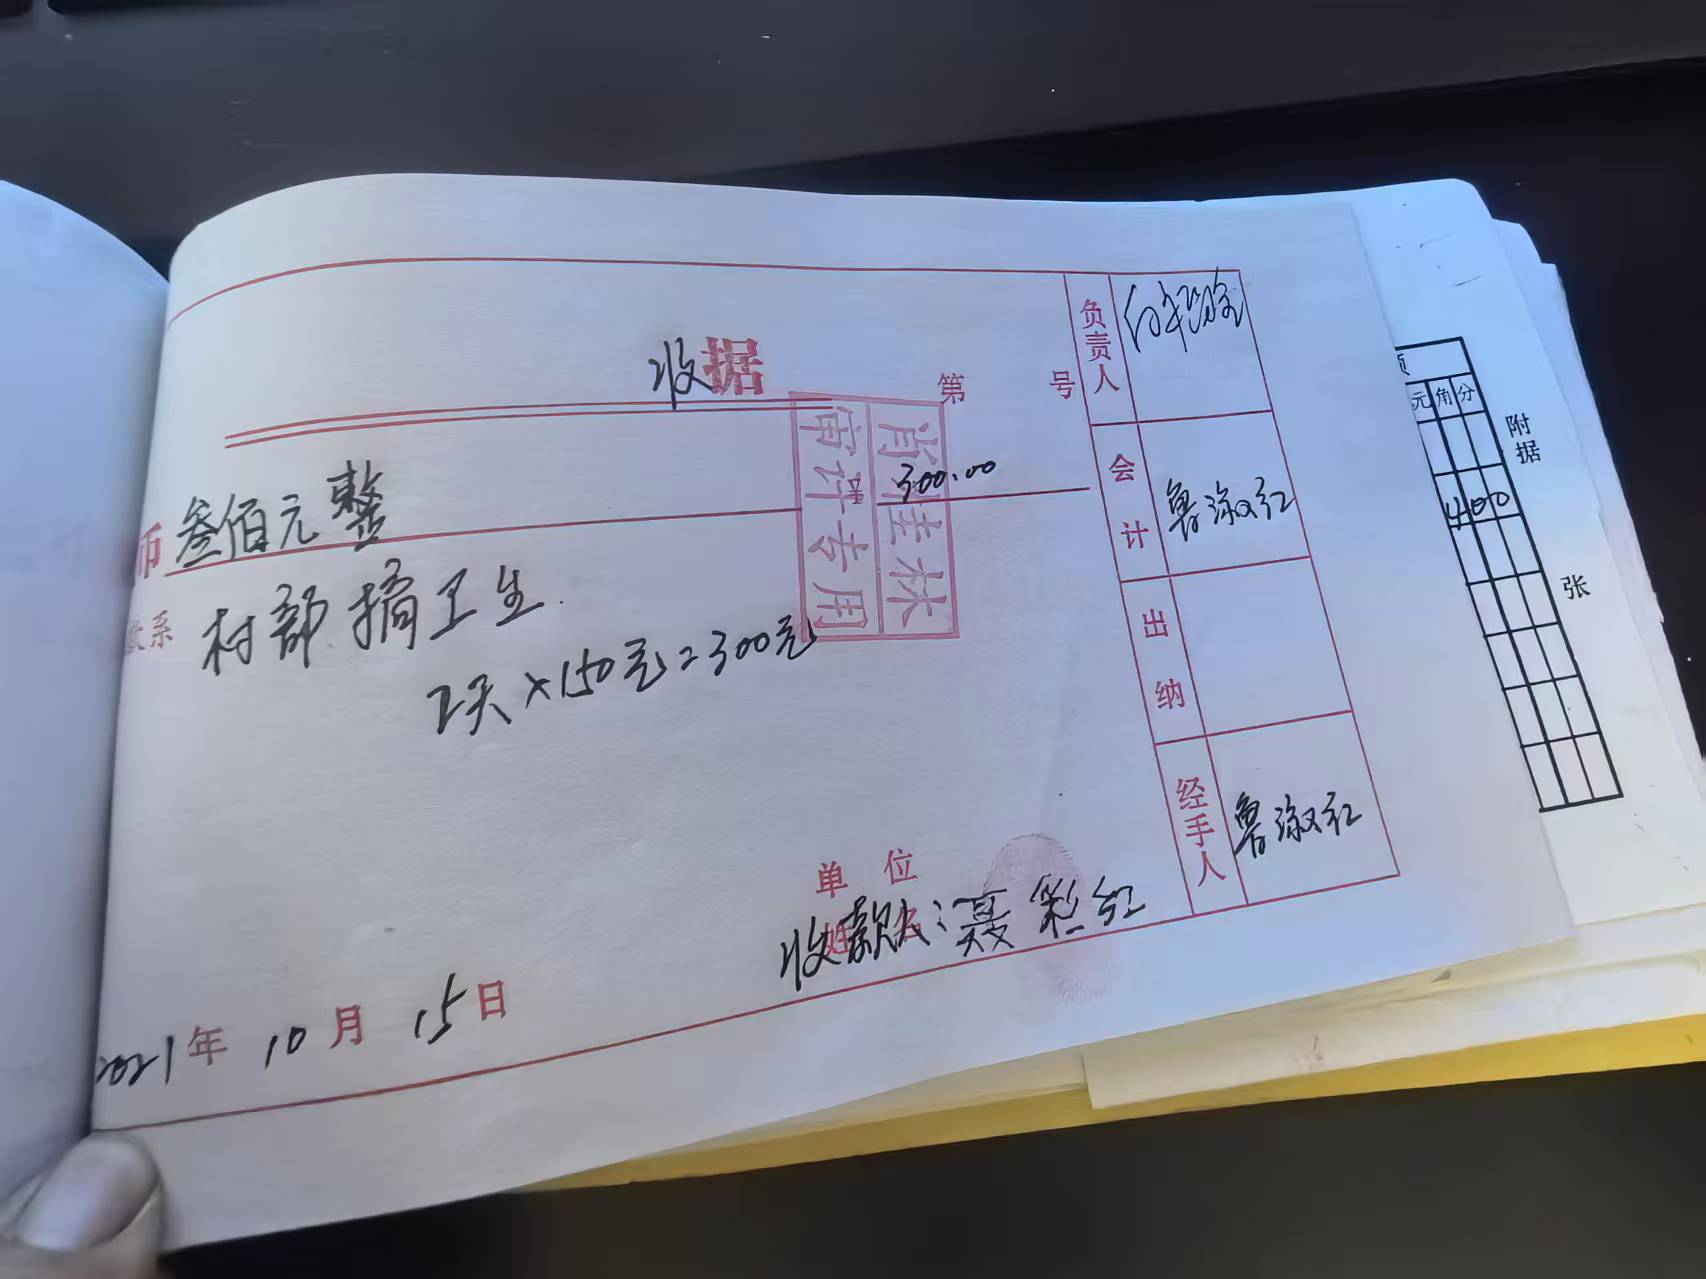 收据
第 号
币 叁佰元整 300.00
系 村部搞卫生
2天×150元=300元
审计专用
单位
收款人:聂彩红
2021年10月15日
负责人
会计 鲁淑红
出纳
经手人 鲁淑红
元角分
400
附
据
张